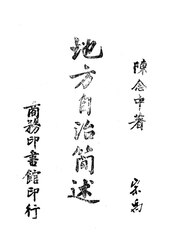 陳念中著
地方自治簡述
商務印書館印行